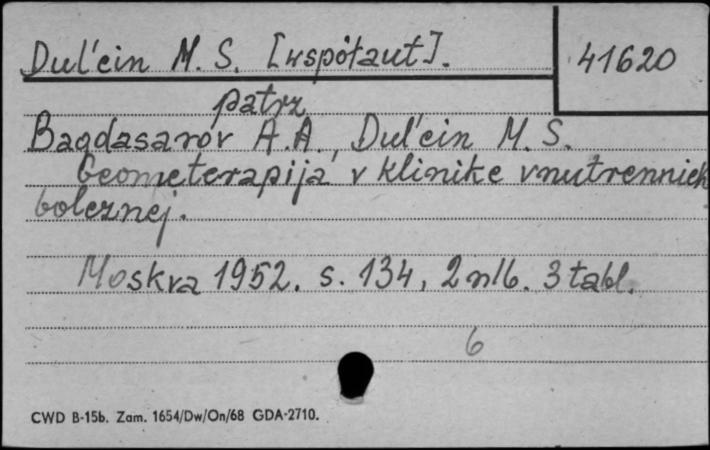 Dul'cin M. S. [współaut].
41620
patrz
Bagdasarov A.A., Dul'cin M. S.
Gemoterapija v klinike vnutrennich
boleznej.
Moskva 1952. s. 134, 2 nlb. 3 tabl.
6
CWD B-15b. Zam. 1654/Dw/On/68 GDA-2710.